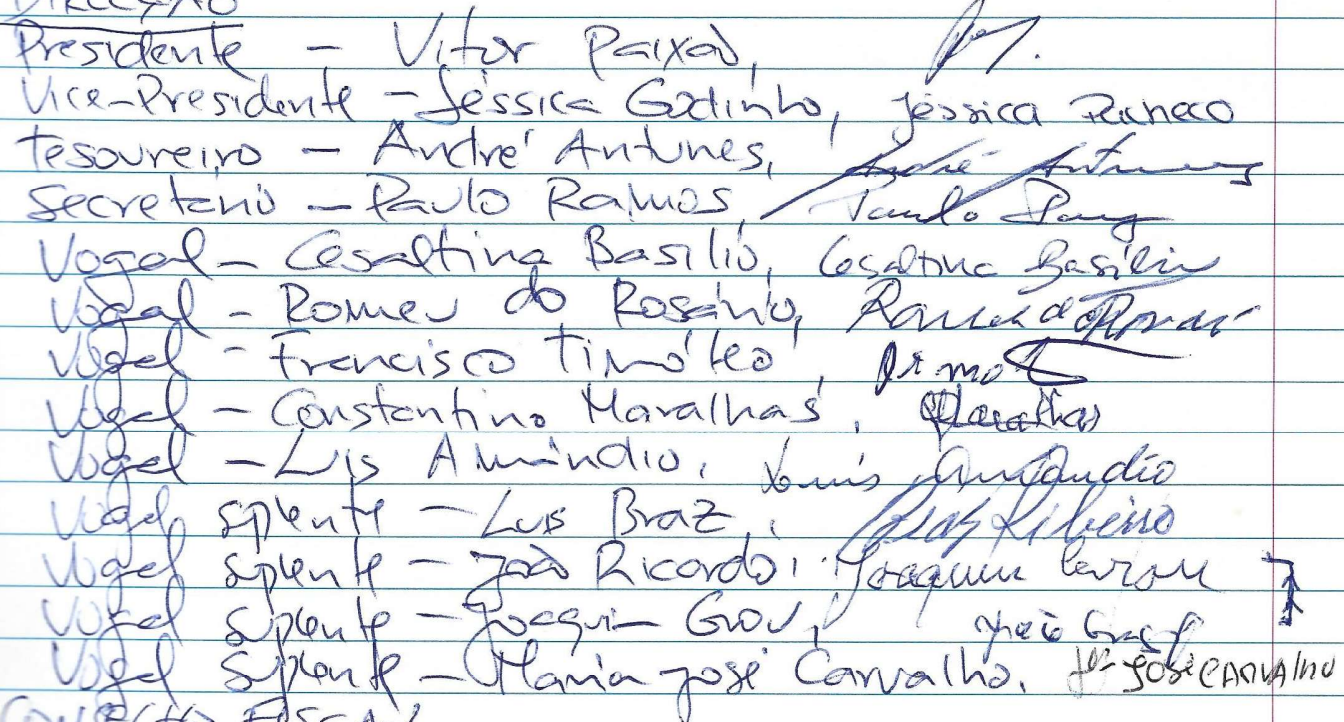 DIRECÇÃO
Presidente - Vitor Paixão,
Vice-Presidente - Jéssica Godinho, Jéssica Pacheco
Tesoureiro - André Antunes, André Antunes
Secretário - Paulo Ramos, Paulo
Vogal - Cesaltina Basílio, Cesaltina Basílio
Vogal - Romeu do Rosário, Romeu do
Vogal - Francisco Timóteo,
Vogal - Constantino Maralhas, Maralhas
Vogal - Luis Amândio, Luís Amândio
Vogal splente - Luis Braz, Braz Ribeiro
Vogal splente - João Ricardo, Joaquim
Vogal splente - Joaquim Grou, João
Vogal splente - Maria José Carvalho, Mª José CARVALHO
CONSELHO FISCAL